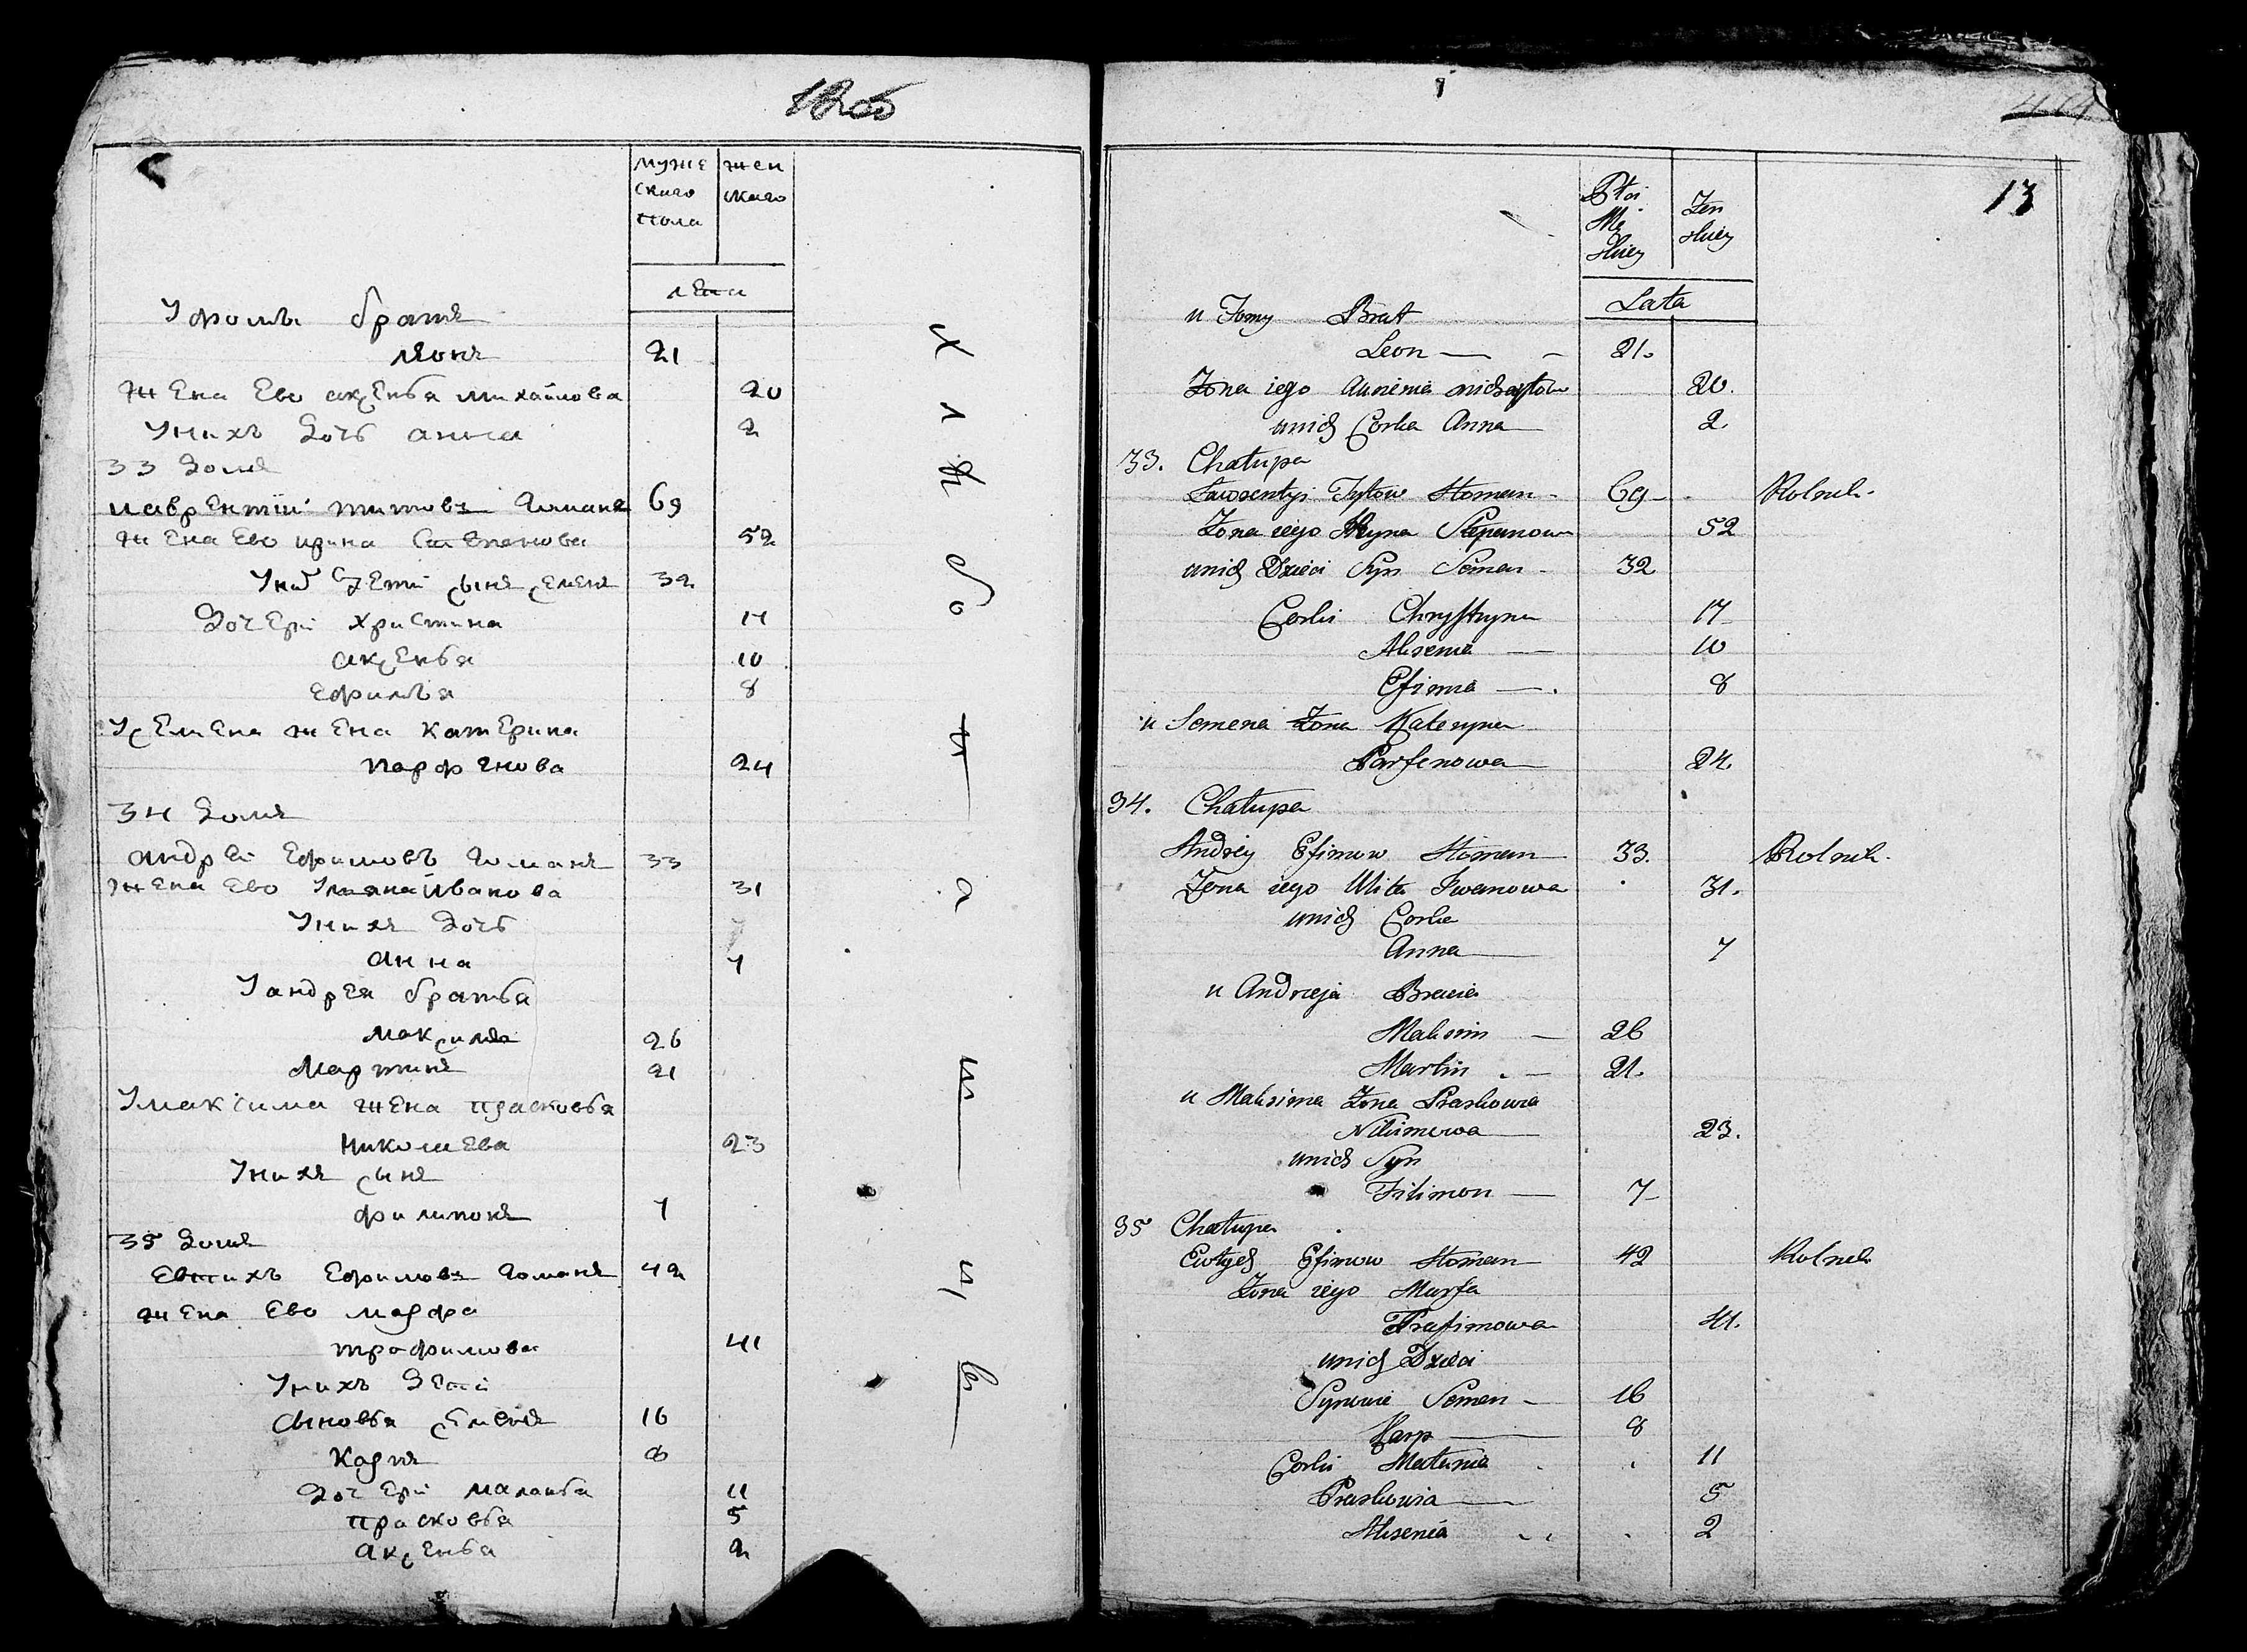 муже
скаго
пола
жен
скаго
лета
У фомы братъ
леонъ 21
жена Ево аксенья михайлова 20
У нихъ дочь анна 2
33 домъ
лаврентiй титовъ гоманъ 69
жена Ево ирина Степанова 52
У них дети сынъ семенъ 32
дочери христина 17
аксенья 10
Ефимья 8
У семена жена катерина
парфенова 24
34 домъ
андрей Ефимовъ гоманъ 33
жена Ево Ульяна Иванова 31
У нихъ дочь
анна 7
У андрея братья
максимъ 26
Мартинъ 21
У максима жена прасковья
23
У нихъ сынъ
филимонъ 7
35 домъ
Евтихъ Ефимовъ гоманъ 42
жена Ево марфа
трофимова 41
У нихъ дети
сыновья семенъ 16
карпъ 8
дочери маланья 11
прасковья 5
аксенья 2
хлебопашцы
13
Płci
Mę
skiey
Żen
skiey
Lata
u Fomy Brat
Leon — 21.
Żona iego Axienia Michayłow 20.
unich Corka Anna 2.
33. Chałupa
Lawrentyi Tytow Homan 69 Rolnik
Żona iego Hryna Stepanowa 52
unich Dzieci Syn Semen 32
Corki Chrystyna 17
Aksenia — 10
Efimia — 8
u Semena Żona Kateryna
Parfenowa 24.
34. Chałupa
Andrey Efimow Homan 33. Rolnik.
Żona iego Ulita Iwanowa 31.
unich Corka
Anna 7
u Andrzeja Bracia
Maksim — 26
Martin — 21.
u Maksima Żona Praskowia
23.
unich Syn
Filimon — 7
35 Chałupa
Ewtych Efimow Homan 42 Rolnik
Żona iego Marfa
Trafimowa 41.
unich Dzieci
Synowie Semen — 16
Karp — 8
Corki Małania 11
Praskowia 5
Aksenia 2